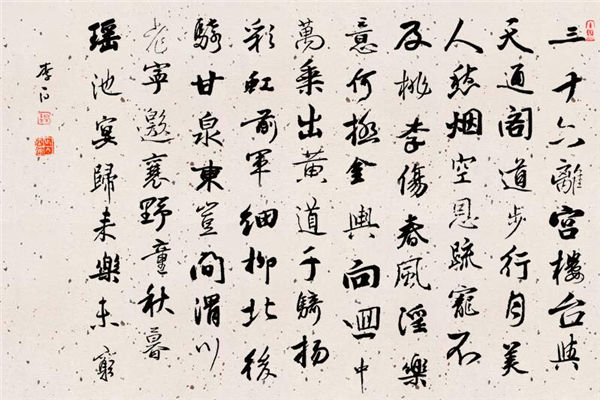 三十六離宮樓台與
天通閣道步行月美
人愁烟空恩疏寵不
及桃李傷春風淫樂
意何極金輿向迴中
萬乘出黃道千騎揚
彩虹前軍細柳北後
騎甘泉東豈問渭川
老寧邀襄野童秋暮
瑶池宴歸来樂未窮
李白